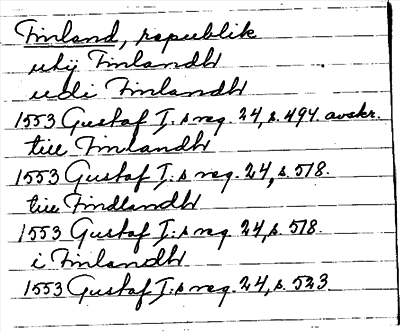 Finland, republik
utij Finlandh
udi Finlandh
1553 Gustaf I:s reg. 24, s. 494. avskr.
till Finlandh
1553 Gustaf I:s reg. 24, s. 518.
till Findlandh
1553 Gustaf I:s reg. 24, s. 518.
i Finlandh
1553 Gustaf I:s reg. 24, s. 523